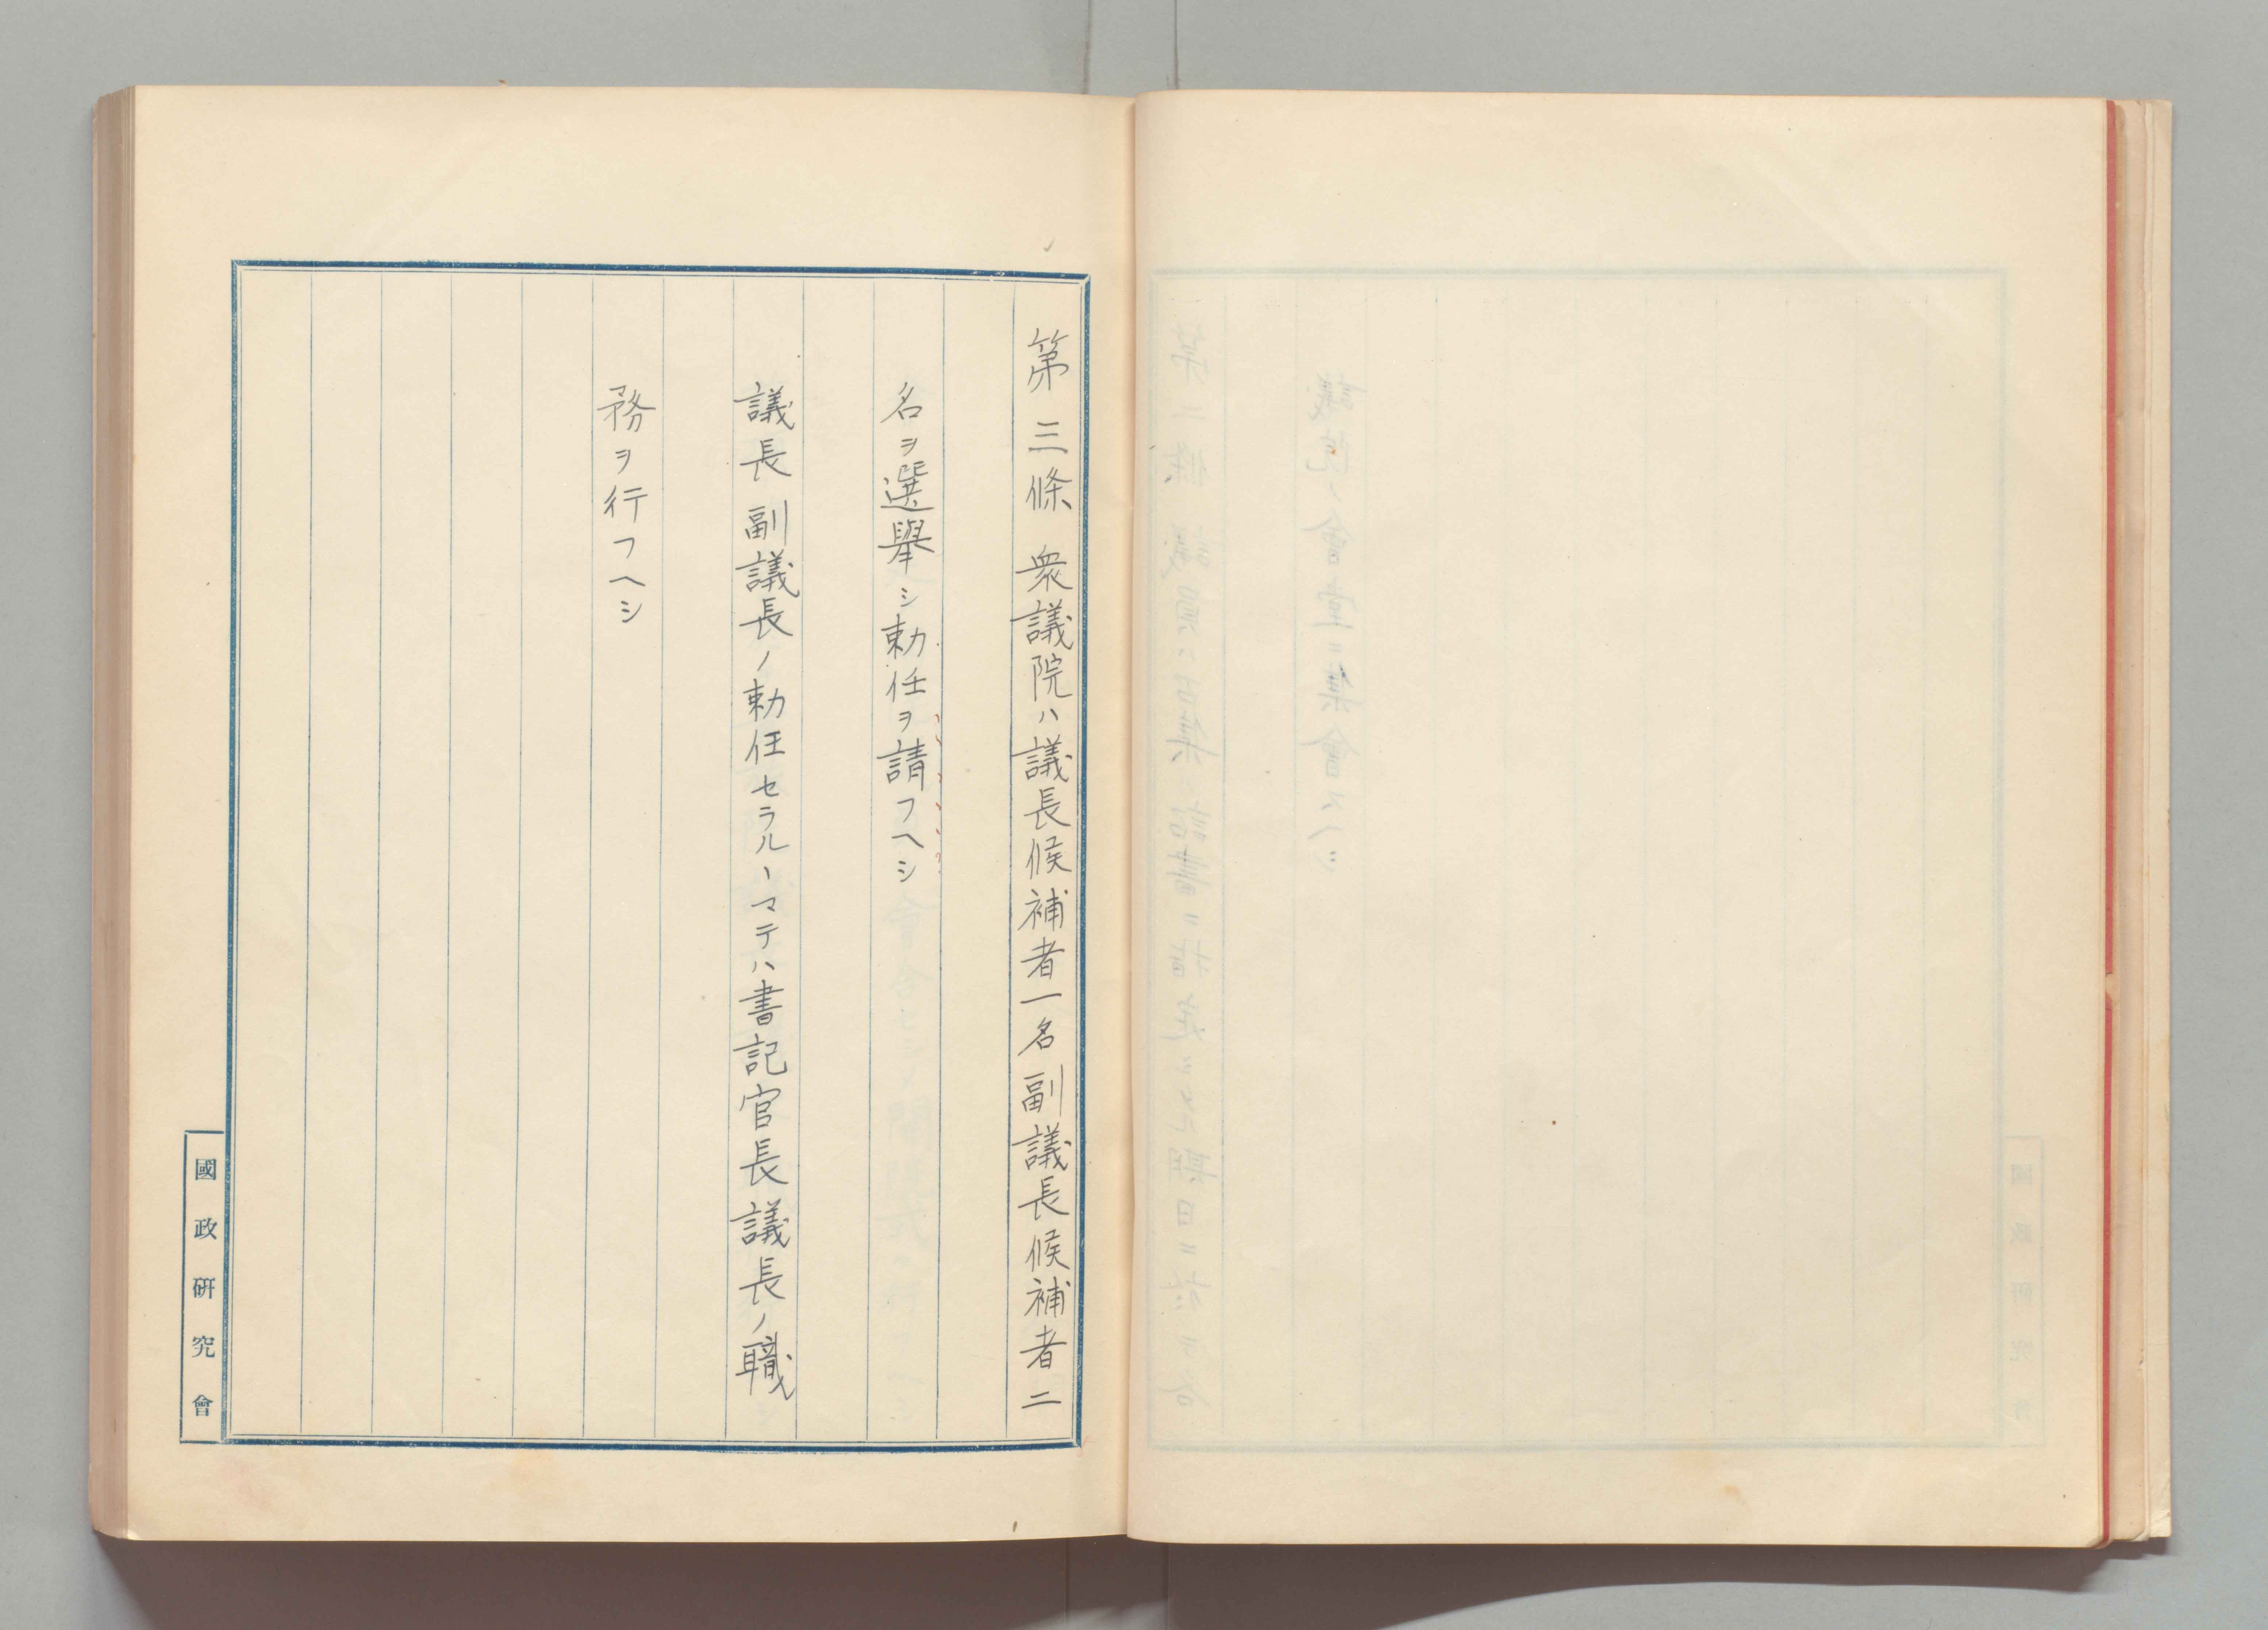 第三條 衆議院ハ議長候補者一名副議長候補者二
名ヲ選擧シ勅任ヲ請フヘシ
議長副議長ノ勅任セラルヽマテハ書記官長議長ノ職
務ヲ行フヘシ
國政研究會